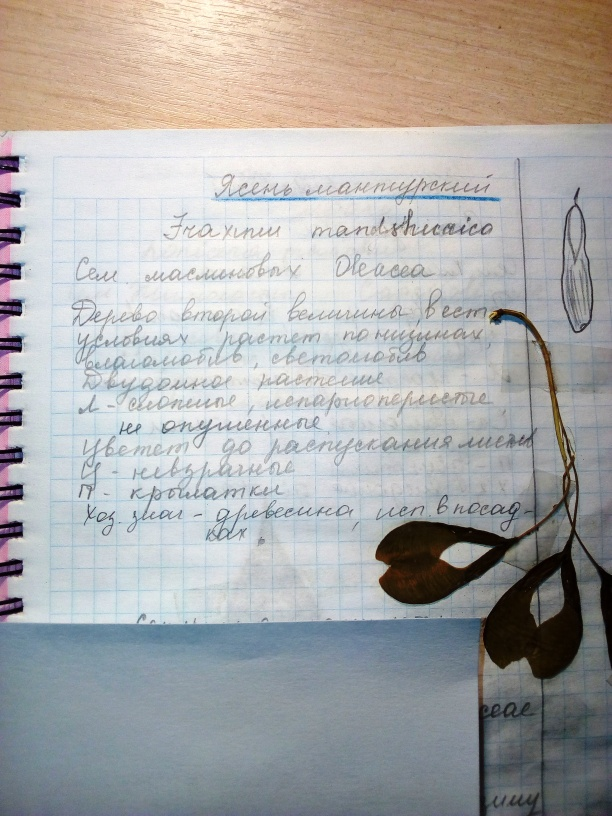 Ясень мантурский
Fraxinu mandshurico
Сем. масличовых Oleacea
Дерево второй величины, в ест.
условиях растет по низинах,
влаголюбив, светолюбив
Двудомное растение
Л - сложные, непарноперистые,
не опушенные
Цветет до распускания листьев
Ц - невзрачные
П - крылатки
Хоз. знач - древесина, исп. в посад-
ках.
сеае